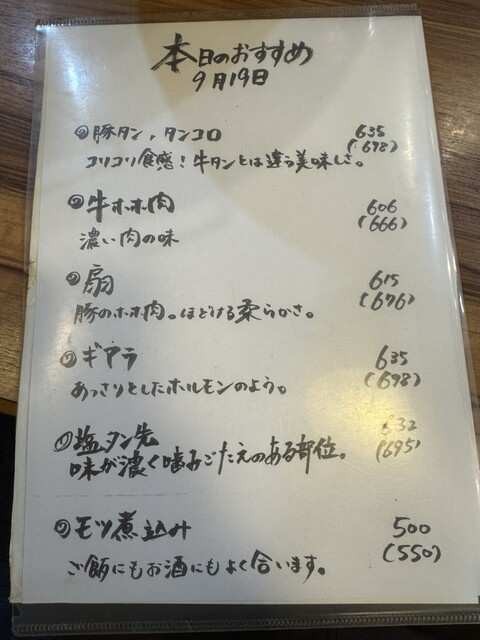 本日のおすすめ
9月19日
豚タン，タンコロ 635
(698)
コリコリ食感！牛タンとは違う美味しさ。
牛ホホ肉 606
(666)
濃い肉の味
扇 615
(676)
豚のホホ肉。ほどける柔らかさ。
ギアラ 635
(698)
あっさりとしたホルモンのよう。
塩タン先 632
(695)
味が濃く噛みごたえのある部位。
モツ煮込み 500
(550)
ご飯にもお酒にもよく合います。